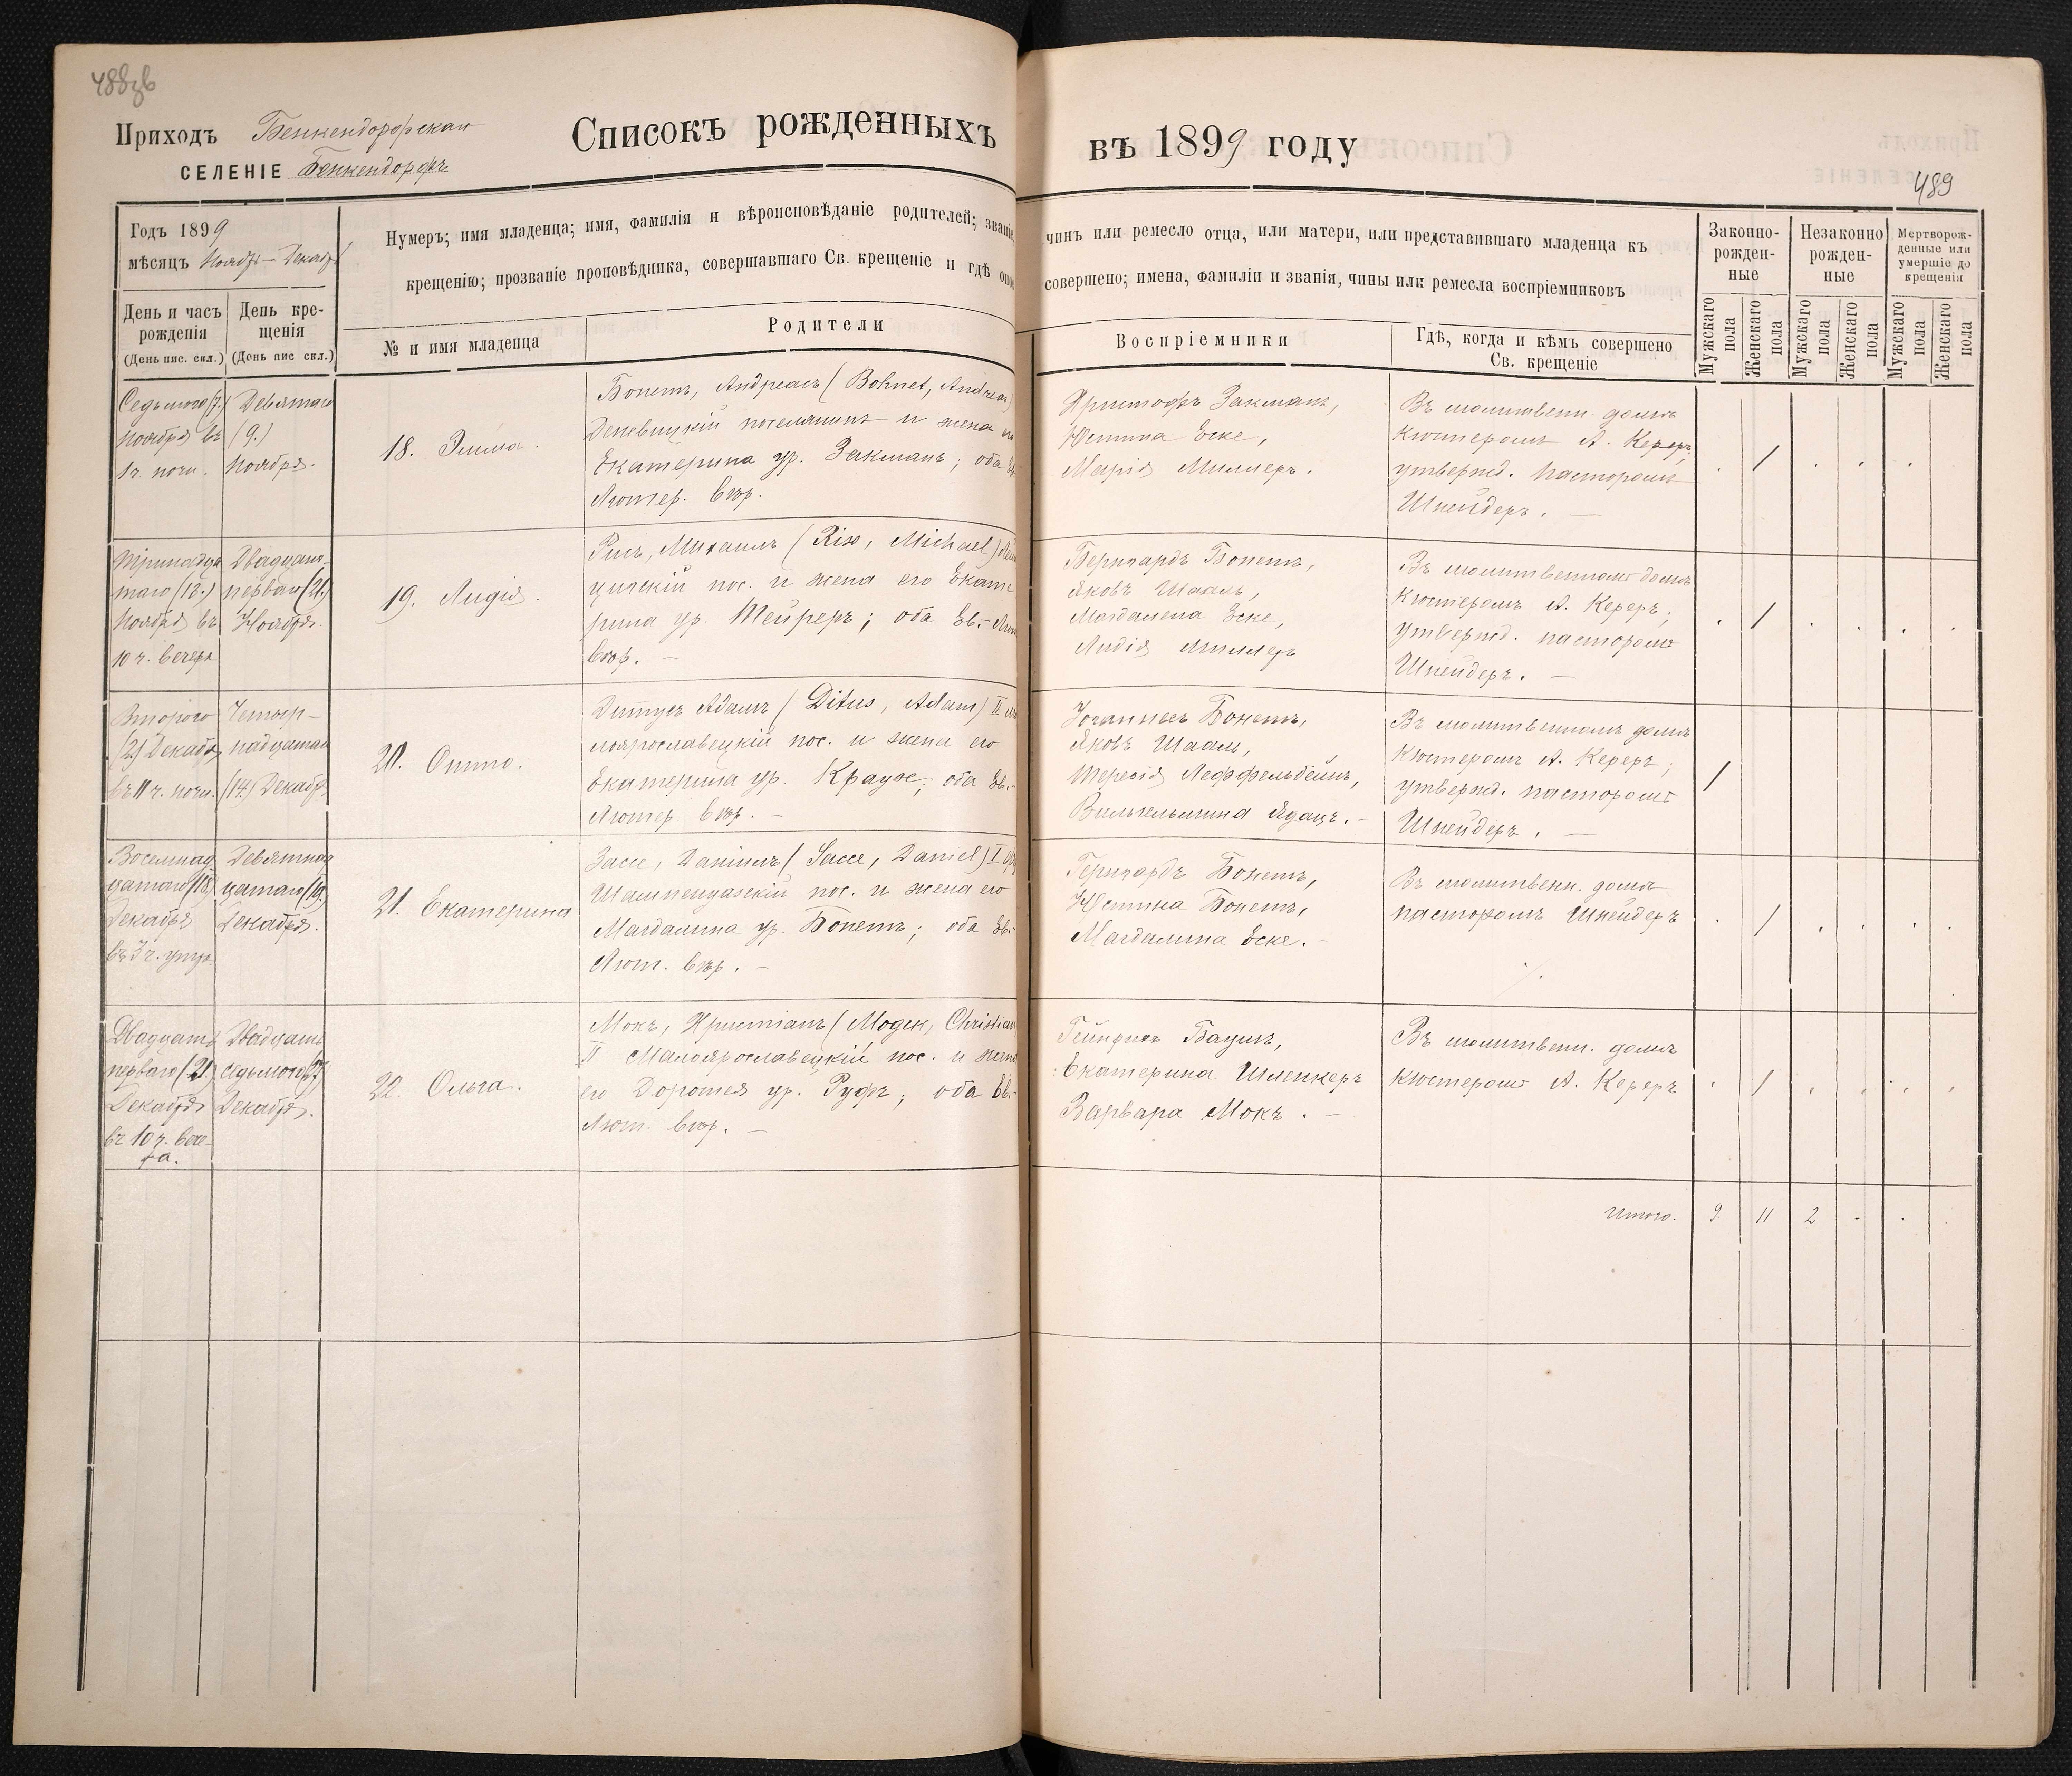 488об
Приходъ Бенкендорфская
СЕЛЕНІЕ Бенкендорфъ
Списокъ рожденныхъ
въ 1899 году
489
Годъ 1899
мѣсяцъ Ноябр.– Декабр.
Нумеръ; имя младенца; имя, фамилія и вѣроисповѣданіе родителей; званіе,
чинъ или ремесло отца, или матери, или представившаго младенца къ
крещенію; прозваніе проповѣдника, совершавшаго Св. крещеніе и гдѣ оное
совершено; имена, фамиліи и званія, чины или ремесла воспріемниковъ
День и часъ
рожденія
(День пис. скл.)
День кре-
щенія
(День пис скл.)
№ и имя младенца
Родители
Воспріемники
Гдѣ, когда и кѣмъ совершено
Св. крещеніе
Законно-
рожден-
ные
Незаконно
рожден-
ные
Мертворож-
денные или
умершіе до
крещенія
Мужскаго
пола
Женскаго
пола
Мужскаго
пола
Женскаго
пола
Мужскаго
пола
Женскаго
пола
Седьмого (7.)
Ноября въ
1 ч. ночи.
Девятаго
(9.)
Ноября.
18. Эмма.
Бонетъ, Андреасъ (Bohnet, Andreas)
Деневицкій поселянинъ и жена
Екатерина ур. Закманъ; оба
Лютер. вѣр.
Христофъ Закманъ,
Юстина Еске,
Марія Миллеръ.
Въ молитвенн. домѣ
Кюстеромъ А. Кереръ,
утвержд. пасторомъ
Шнейдеръ. —
Тринадца
таго (13.)
Ноября въ
10 ч. вечера
Двадцать
перваго (21.)
Ноября.
19. Лидія.
Рисъ, Михаилъ (Riss, Michael)
цигскій пос. и жена его Екате
рина ур. Мейреръ; оба Ев.-Лют
вѣр. —
Бернгардъ Бонетъ,
Яковъ Шааль,
Магдалена Еске,
Лидія Миллеръ
Въ молитвенномъ домѣ
Кюстеромъ А. Кереръ;
утвержд. пасторомъ
Шнейдеръ. —
Второго
(2.) Декабр.
въ 11 ч. ночи.
Четыр-
надцатаго
(14.) Декабр.
20. Отто.
Дитусъ Адамъ (Ditus, Adam) II Ма
лоярославецкій пос. и жена его
Екатерина ур. Краузе; оба Ев.-
Лютер. вѣр. —
Іоганнесъ Бонетъ,
Яковъ Шааль,
Терезія Леффельбейнъ,
Вильгельмина Ядацъ. —
Въ молитвенномъ домѣ
Кюстеромъ А. Кереръ;
утвержд. пасторомъ
Шнейдеръ. —
Восемнад
цатаго (18.)
Декабря
въ 3 ч. утра
Девятнад
цатаго (19.)
Декабря.
21. Екатерина
Зассе, Даніилъ (Sasse, Daniel) I
Шампенуазскій пос. и жена его
Магдалина ур. Бонетъ; оба Ев.-
Лют. вѣр. —
Гернгардъ Бонетъ,
Юстина Бонетъ,
Магдалина Еске. –
Въ молитвенн. домѣ
пасторомъ Шнейдеръ
Двадцать
перваго (21.)
Декабря
въ 10 ч. вече-
ра.
Двадцать
седьмого (27
Декабря.
22. Ольга.
Мокъ, Христіанъ (Mogck, Christian
II Малоярославецкій пос. и жена
его Доротея ур. Руфъ; оба Ев.-
Лют. вѣр. —
Гейнрихъ Бацшъ,
Екатерина Шленкеръ
Варвара Мокъ. —
Въ молитвенн. домѣ
Кюстеромъ А. Кереръ
Итого. 9. 11 2 - . .